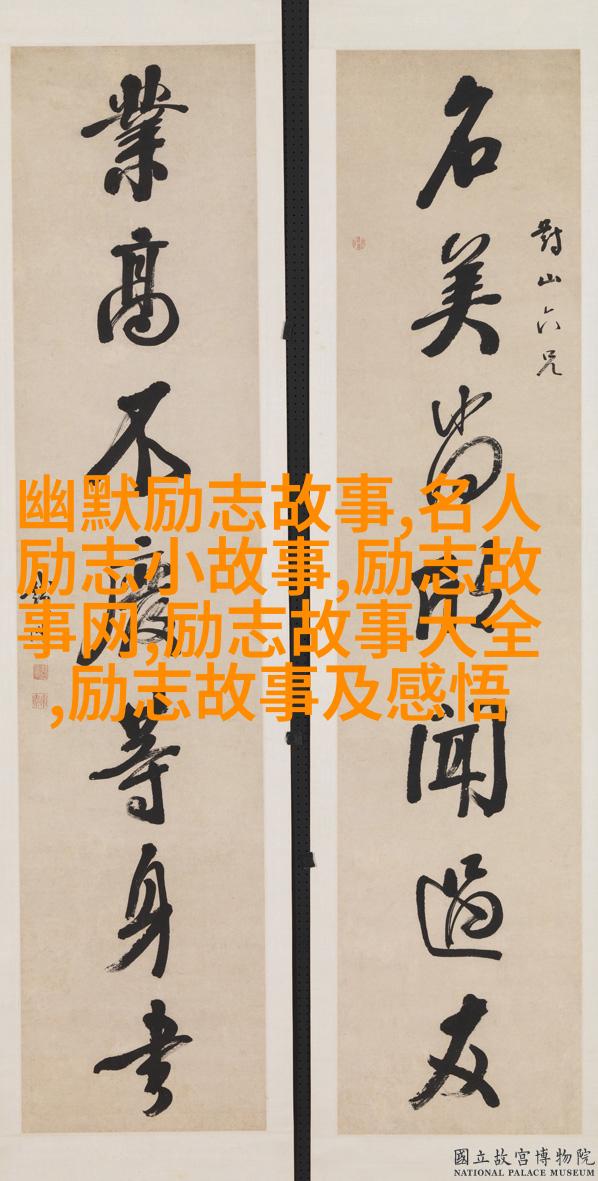 對山六兄
名美尚欣聞過友
業高不廢等身書
幽默励志故事,名人
励志小故事,励志故
事网,励志故事大全
,励志故事及感悟
國立故宮博物院
NATIONAL PALACE MUSEUM